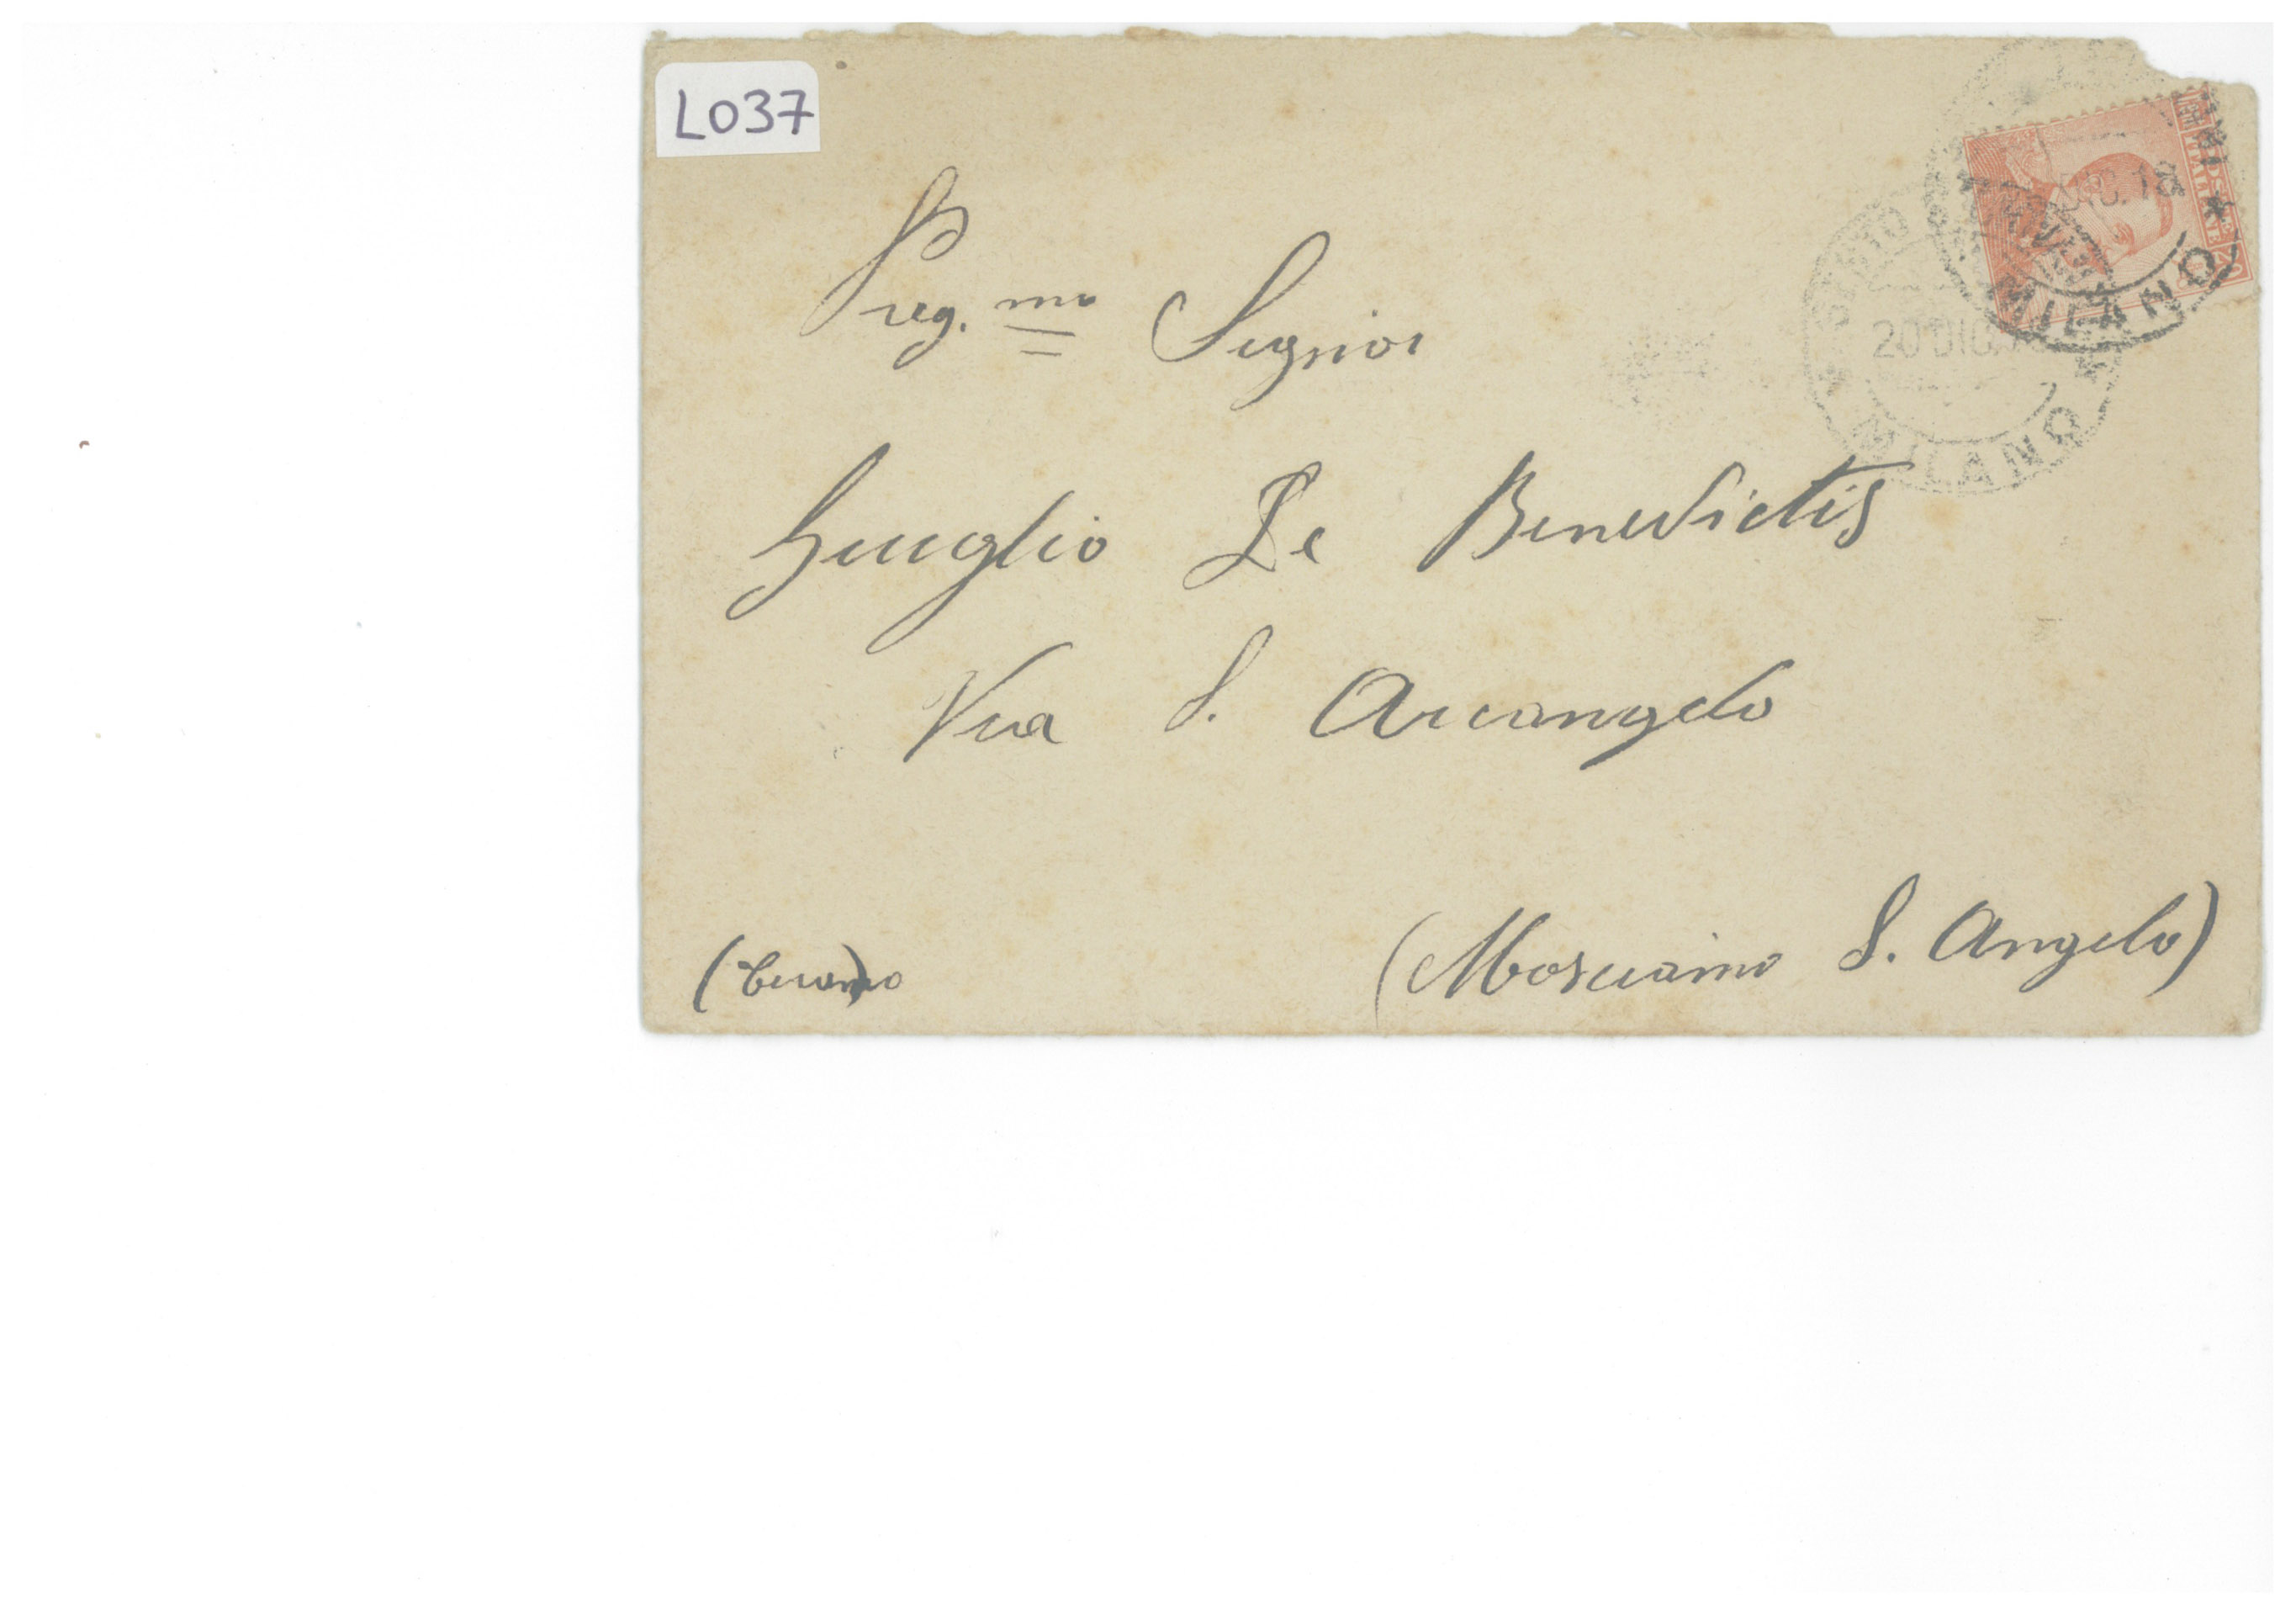 L037
Preg.mo Signor
De Benedictis
Via S. Arcangelo
(Mosciano S. Angelo)
(Teramo)
20 DIC.
MILANO
DIC. 18
MILANO